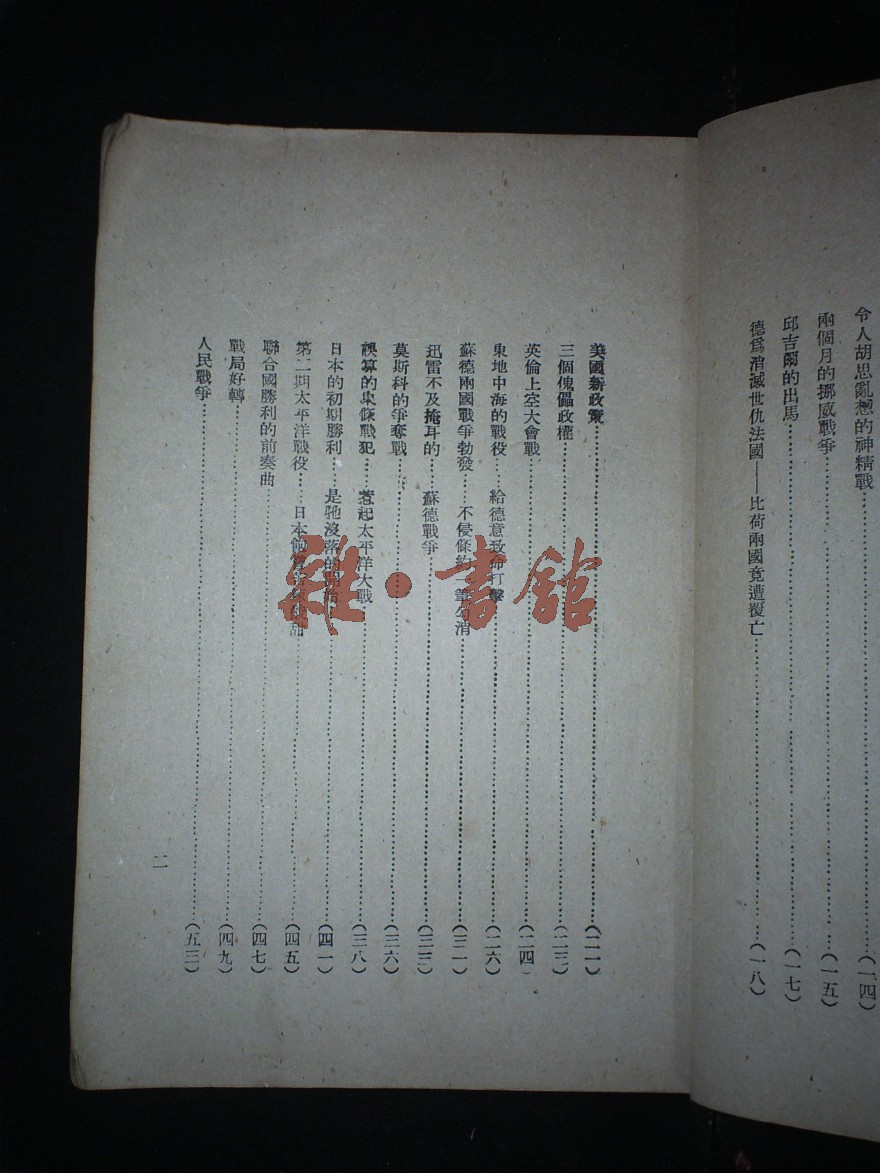 令人胡思亂想的神精戰……(一四)
兩個月的挪威戰爭……(一五)
邱吉爾的出馬……(一七)
德爲消滅世仇法國——比荷兩國竟遭覆亡……(一八)
美國新政策……(二一)
三個傀儡政權……(二三)
英倫上空大會戰……(二四
東地中海的戰役……給德意致命打擊……(二六)
蘇德兩國戰爭勃發……不侵條約一筆勾消……(三一)
迅雷不及掩耳的……蘇德戰爭……(三三)
莫斯科的爭奪戰……(三六)
誤算的東條戰犯……惹起太平洋大戰……(三八)
日本的初期勝利……是馳沒落的開始……(四一)
第二期太平洋戰役……日本飽嘗……(四五)
聯合國勝利的前奏曲……(四七)
戰局好轉……(四九)
人民戰爭……(五三)
二
雜·書館